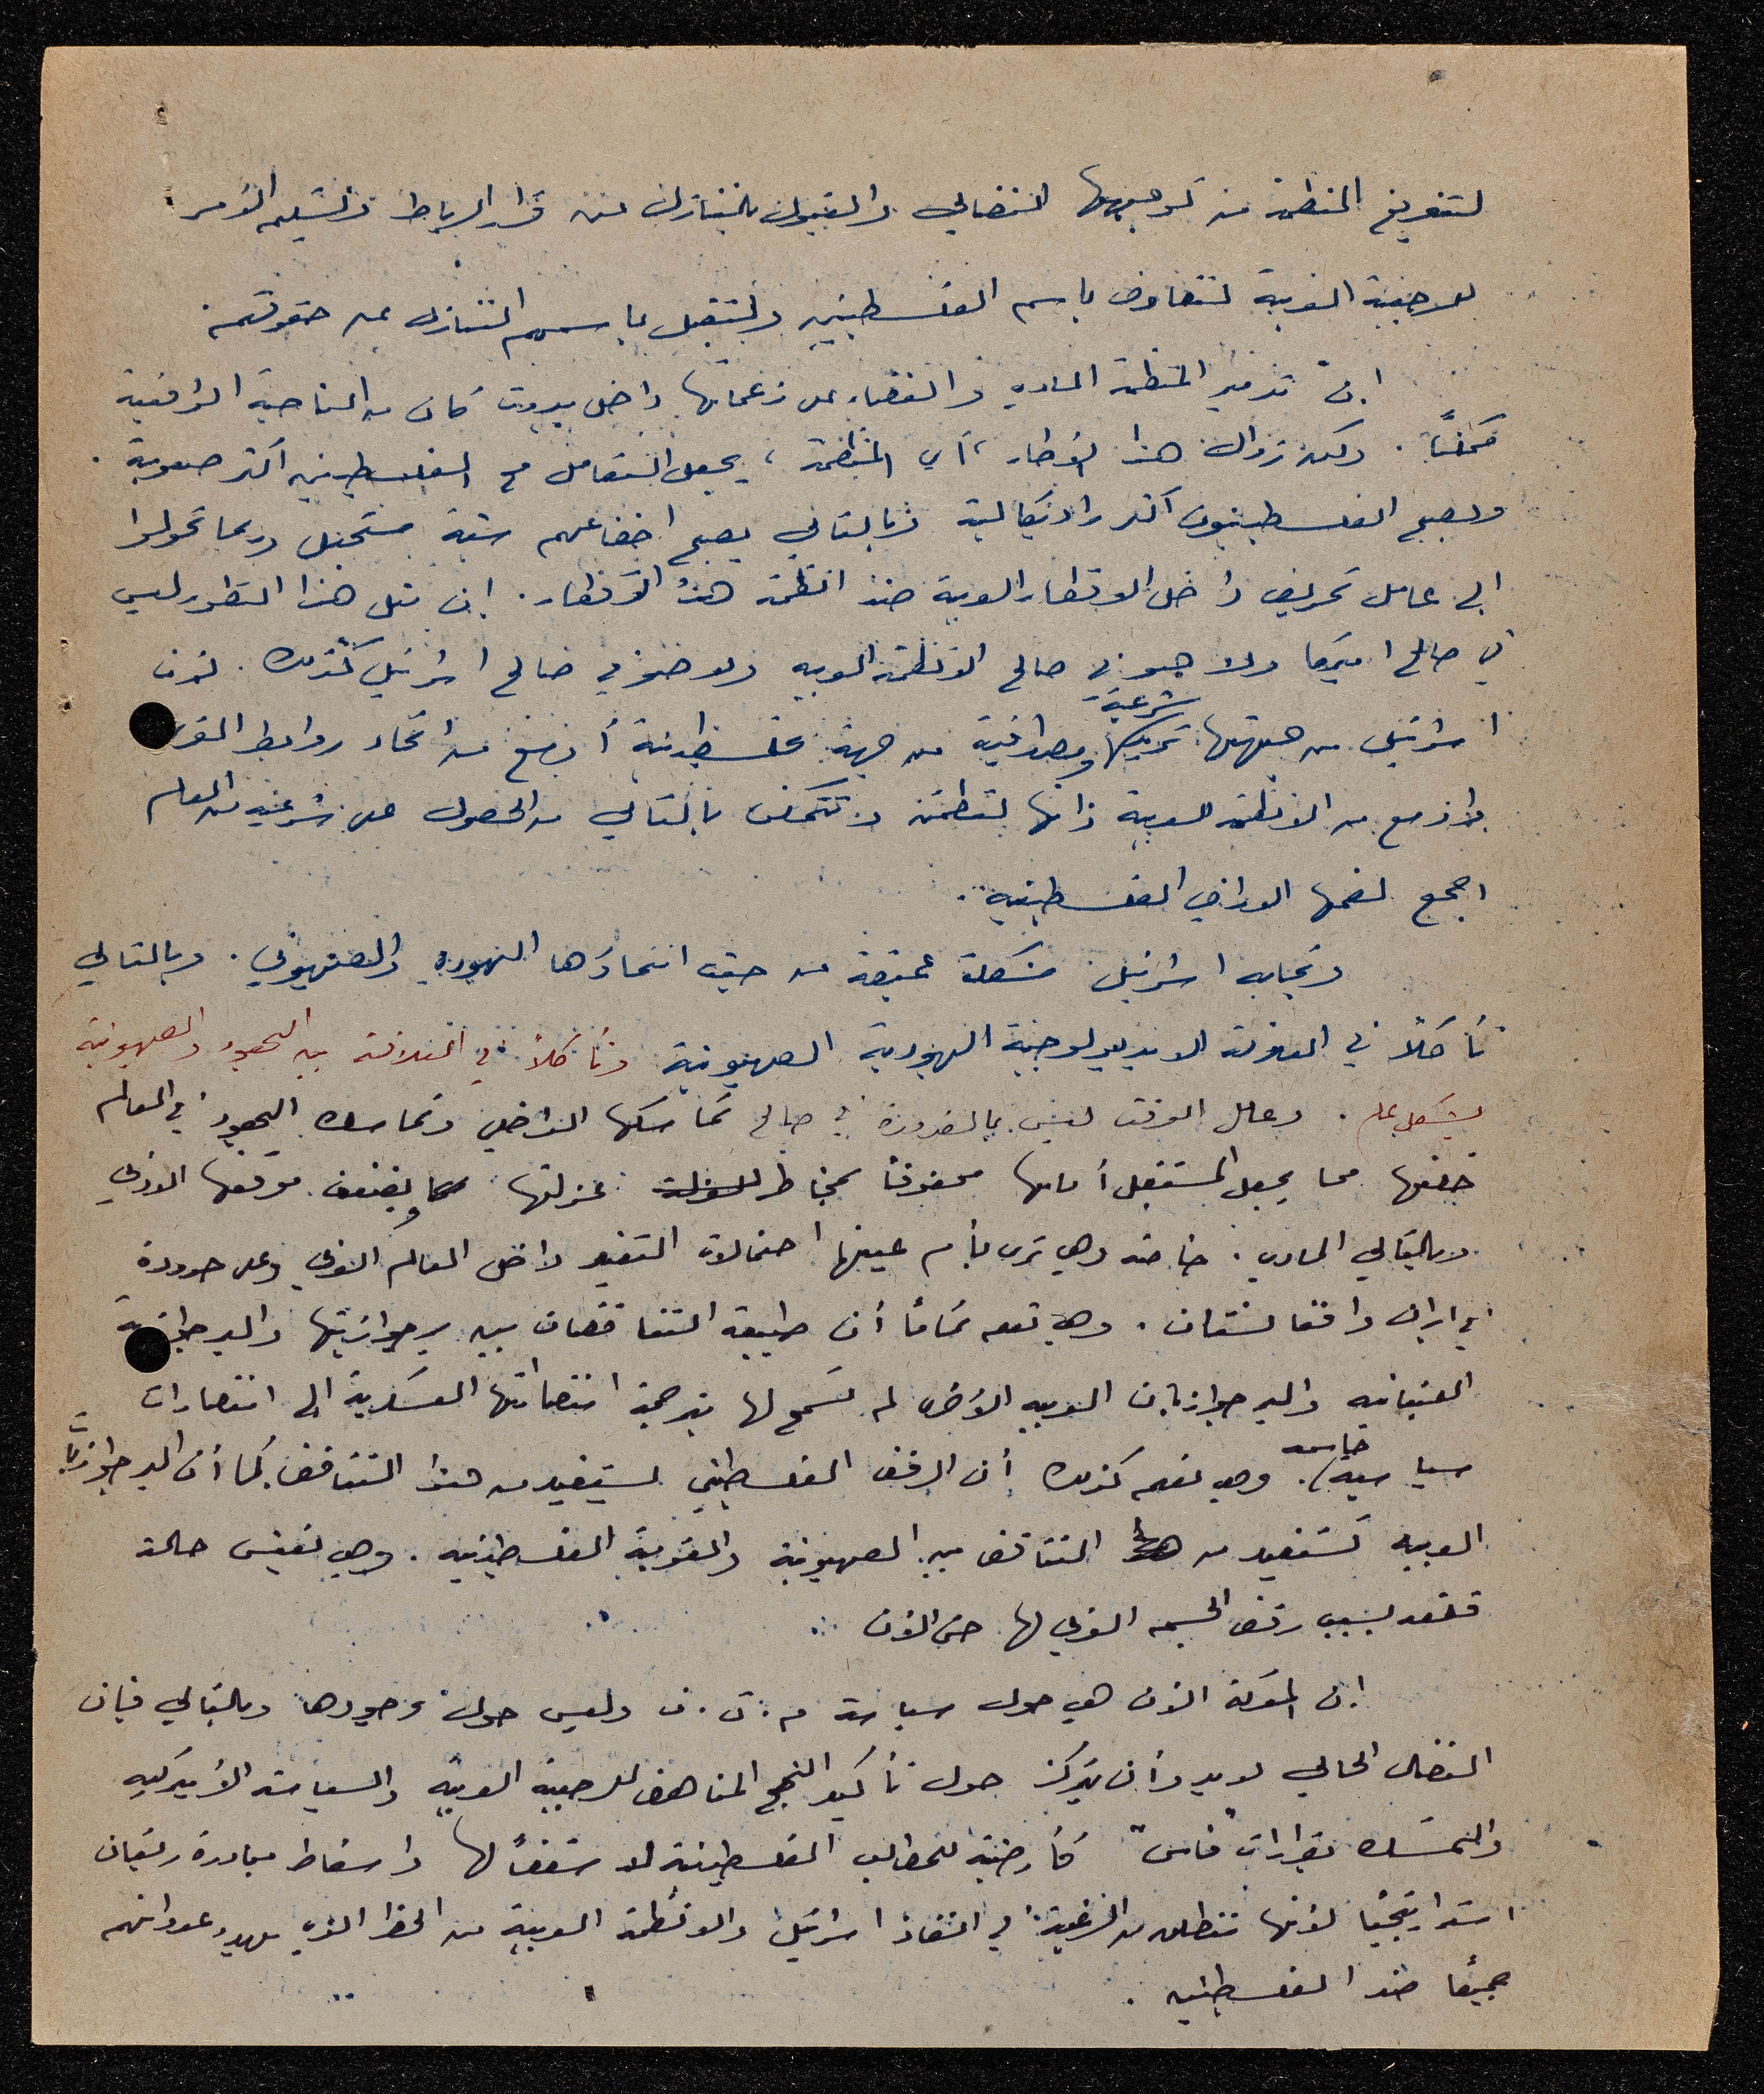 لتفريغ المنظمة من توجهها النضالي والقبول بالتنازل عن قرار الرباط وتسليم الأمر
للرجعية العربية لتتفاوض باسم الفلسطينيين ولتقبل باسمهم التنازل عن حقوقهم.
ان تدمير المنظمة المادي والقضاء على زعمائها داخل بيروت كان من الناحية الواقعية
ممكناً. ولكن زوال هذا الإطار، أي المنظمة، يجعل التعامل مع الفلسطينيين أكثر صعوبة.
ويصبح الفلسطينيون أكثر راديكالية وبالتالي يصبح اخضاعهم شبه مستحيل وربما تحولوا
الى عامل تحريض داخل الاقطار العربية ضد انظمة هذه الأقطار. إن مثل هذا التطور ليس
في صالح اميركا ولا هو في صالح الانظمة العربية ولا هو في صالح اسرائيل كذلك. لأن
اسرائيل من جهتها تريد شرعية ومصداقية من جهة فلسطينية أوسع من اتحاد روابط القرى
وأوسع من الانظمة العربية ذاتها لتطمئن وتتمكن بالتالي من الحصول على شرعية من العالم
اجمع لضمها الاراضي الفلسطينية.
وتجابه اسرائيل مشكلة عميقة من حيث انتماؤها اليهودي والصهيوني. وبالتالي
تأكلاً في المقولة الايديولوجية اليهودية الصهيونية وتأكلاً في العلاقة بين اليهود والصهيونية
بشكل عام. وعامل الوقت ليس بالضرورة في صالح تماسكها الداخلي وتماسك اليهود في العالم
خلفها مما يجعل المستقبل أمامها محفوفاً بمخاطر عزلتها ويضعف موقفها الادبي
وبالتالي المادي. خاصة وهي ترى بأم عينها احتمالات التغير داخل العالم العربي وعلى حدوده
في ايران وافغانستان. وهي تعلم تماماً أن طبيعة التناقضات بين برجوازيتها والبرجوازية
اللبنانية والبرجوازيات العربية الأخرى لم تسمح لها بترجمة انتصاراتها العسكرية الى انتصارات
سياسية حاسمة. وهي تعلم كذلك أن الرفض الفلسطيني يستفيد من هذا التناقض كما أن البرجوازيات
العربية تستفيد من التناقض بين الصهيونية والقومية الفلسطينية. وهي تعيش حالة
قلقة بسبب رفض الجسم العربي لها حتى الآن.
إن المعركة الآن هي حول سياسة م.ت.ف وليس حول وجودها وبالتالي فإن
النضال الحالي لا بد وأن يتركز حول تأكيد النهج المناهض للرجعية العربية والسياسة الأميركية
والتمسك بقرارات "فاس" كأرضية للمطالب الفلسطينية لا سقفاً لها واسقاط مبادرة ريغان
استراتيجياً لأنها تنطلق من الرغبة في انقاذ اسرائيل والانظمة العربية من الخطر الذي يهدد عدوانهم
جميعاً ضد الفلسطينيين.